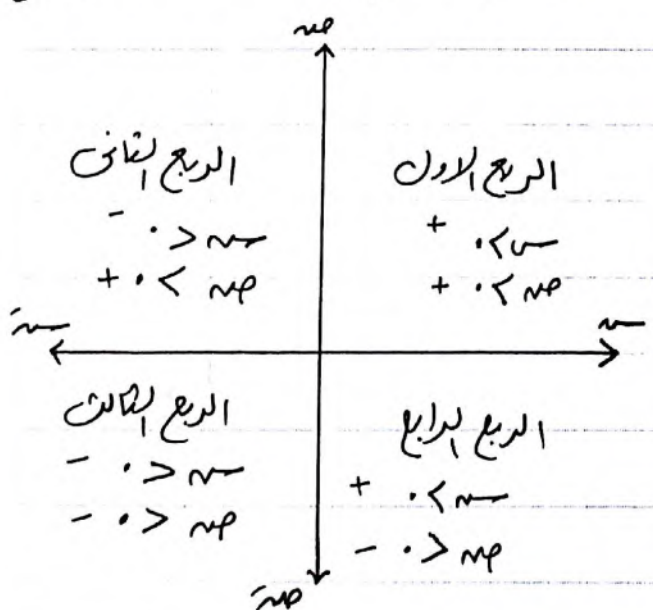 ص
الربع الثانى
س < ٠ -
ص > ٠ +
الربع الاول
س > ٠ +
ص > ٠ +
سَ
س
الربع الثالث
س < ٠ -
ص < ٠ -
الربع الرابع
س > ٠ +
ص < ٠ -
صَ